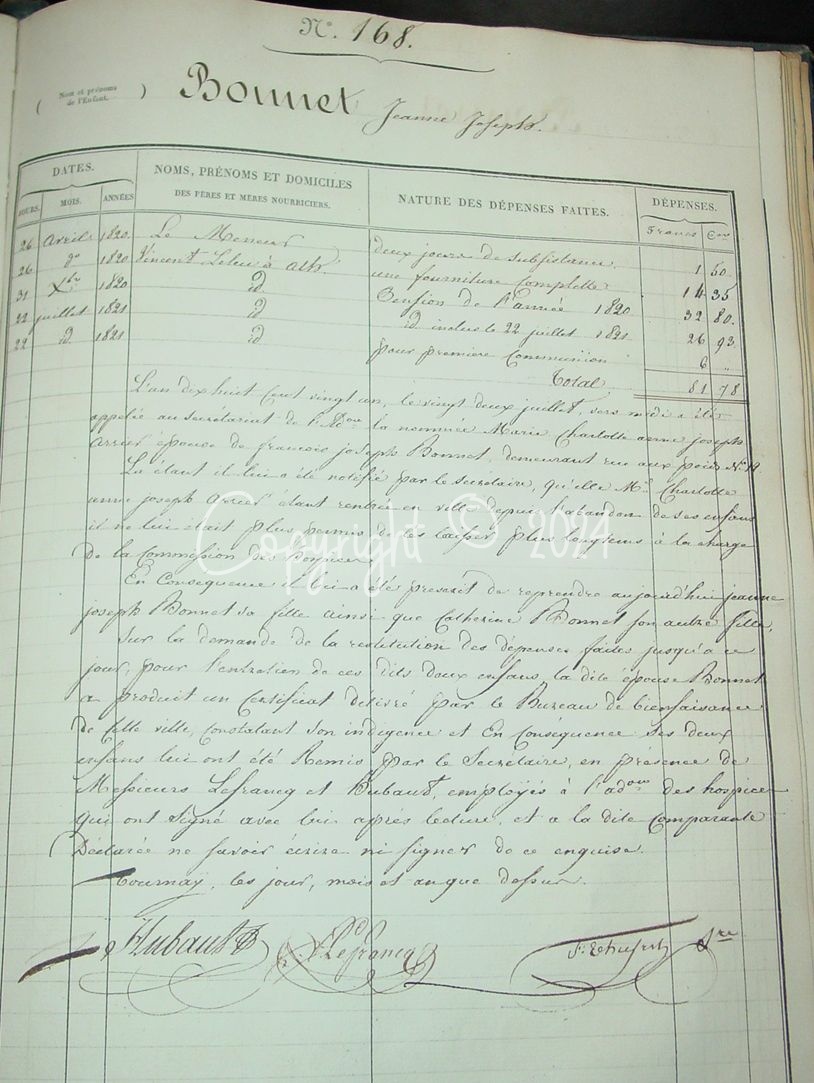 N.º 168.
( Nom et prénoms de l'Enfant. ) Bonnet Jeanne Joseph.
DATES. NOMS, PRÉNOMS ET DOMICILES DES PÈRES ET MÈRES NOURRICIERS. NATURE DES DÉPENSES FAITES. DÉPENSES.
JOURS. MOIS. ANNÉES Francs Cen
26 avril 1820 Le Meneur deux jours de subsistance 1 50.
26 do 1820 Vincent à ath. une fourniture complette 14 35
31 Xbre 1820 id Pension de l'année 1820 32 80.
22 juillet 1821 id id. inclus le 22 juillet 1821 26 93
22 id. 1821 id pour première Communion 6 "
Total 81 78
L'an dix huit Cent vingt un, le vingt deux juillet, vers midi a été
appelée au secrétariat de l'adon la nommée Marie Charlotte anne joseph
arrier épouse de francois joseph Bonnet, demeurant rue aux pois No 19
La étant il lui a été notifié par le secrétaire, qu'elle Me Charlotte
anne joseph arrier étant rentrée en ville depuis l'abandon de ses enfans
il ne lui était plus permis de les laisser plus longtems à la charge
de la Commission des hospices
En Conséquence il lui a été prescrit de reprendre aujourd'hui jeanne
joseph Bonnet sa fille ainsi que Catherine Bonnet son autre fille.
Sur la demande de la restitution des dépenses faites jusqu'à ce
jour, pour l'entretien de ces dits deux enfans, la dite épouse Bonnet
a produit un Certificat délivré par le Bureau de bienfaisance
de cette ville, Constatant son indigence et En Conséquence ses deux
enfans lui ont été Remis par le Secrétaire, en présence de
Messieurs Lefrancq et Hubault, employés à l'adon des hospices
qui ont signé avec lui après lecture, et a la dite Comparante
Déclarée ne savoir écrire ni signer de ce enquise.
Tournay, les jour, mois et an que dessus.
Hubault Lefrancq Sre
Copyright © 2021